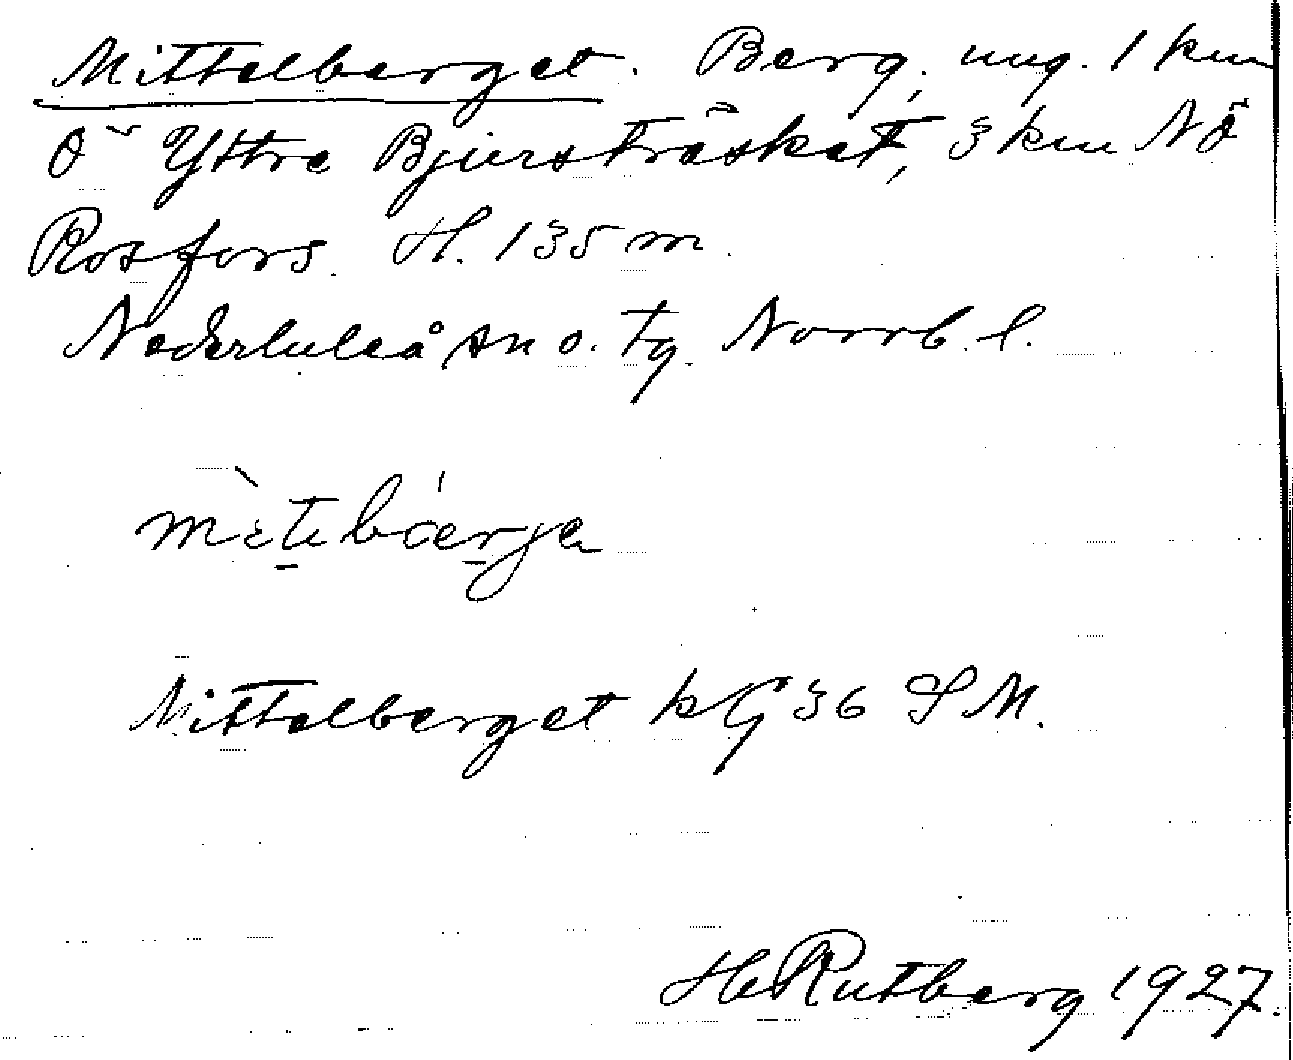 Mittelberget. Berg, ung. 1 km
Ö Yttre Bjursträsket, 3 km NÖ
Rosfors. H. 135 m.
Nederluleå sn o. tg. Norrb. l.
Mittelberget kG 36 SM.
H Rutberg 1927.